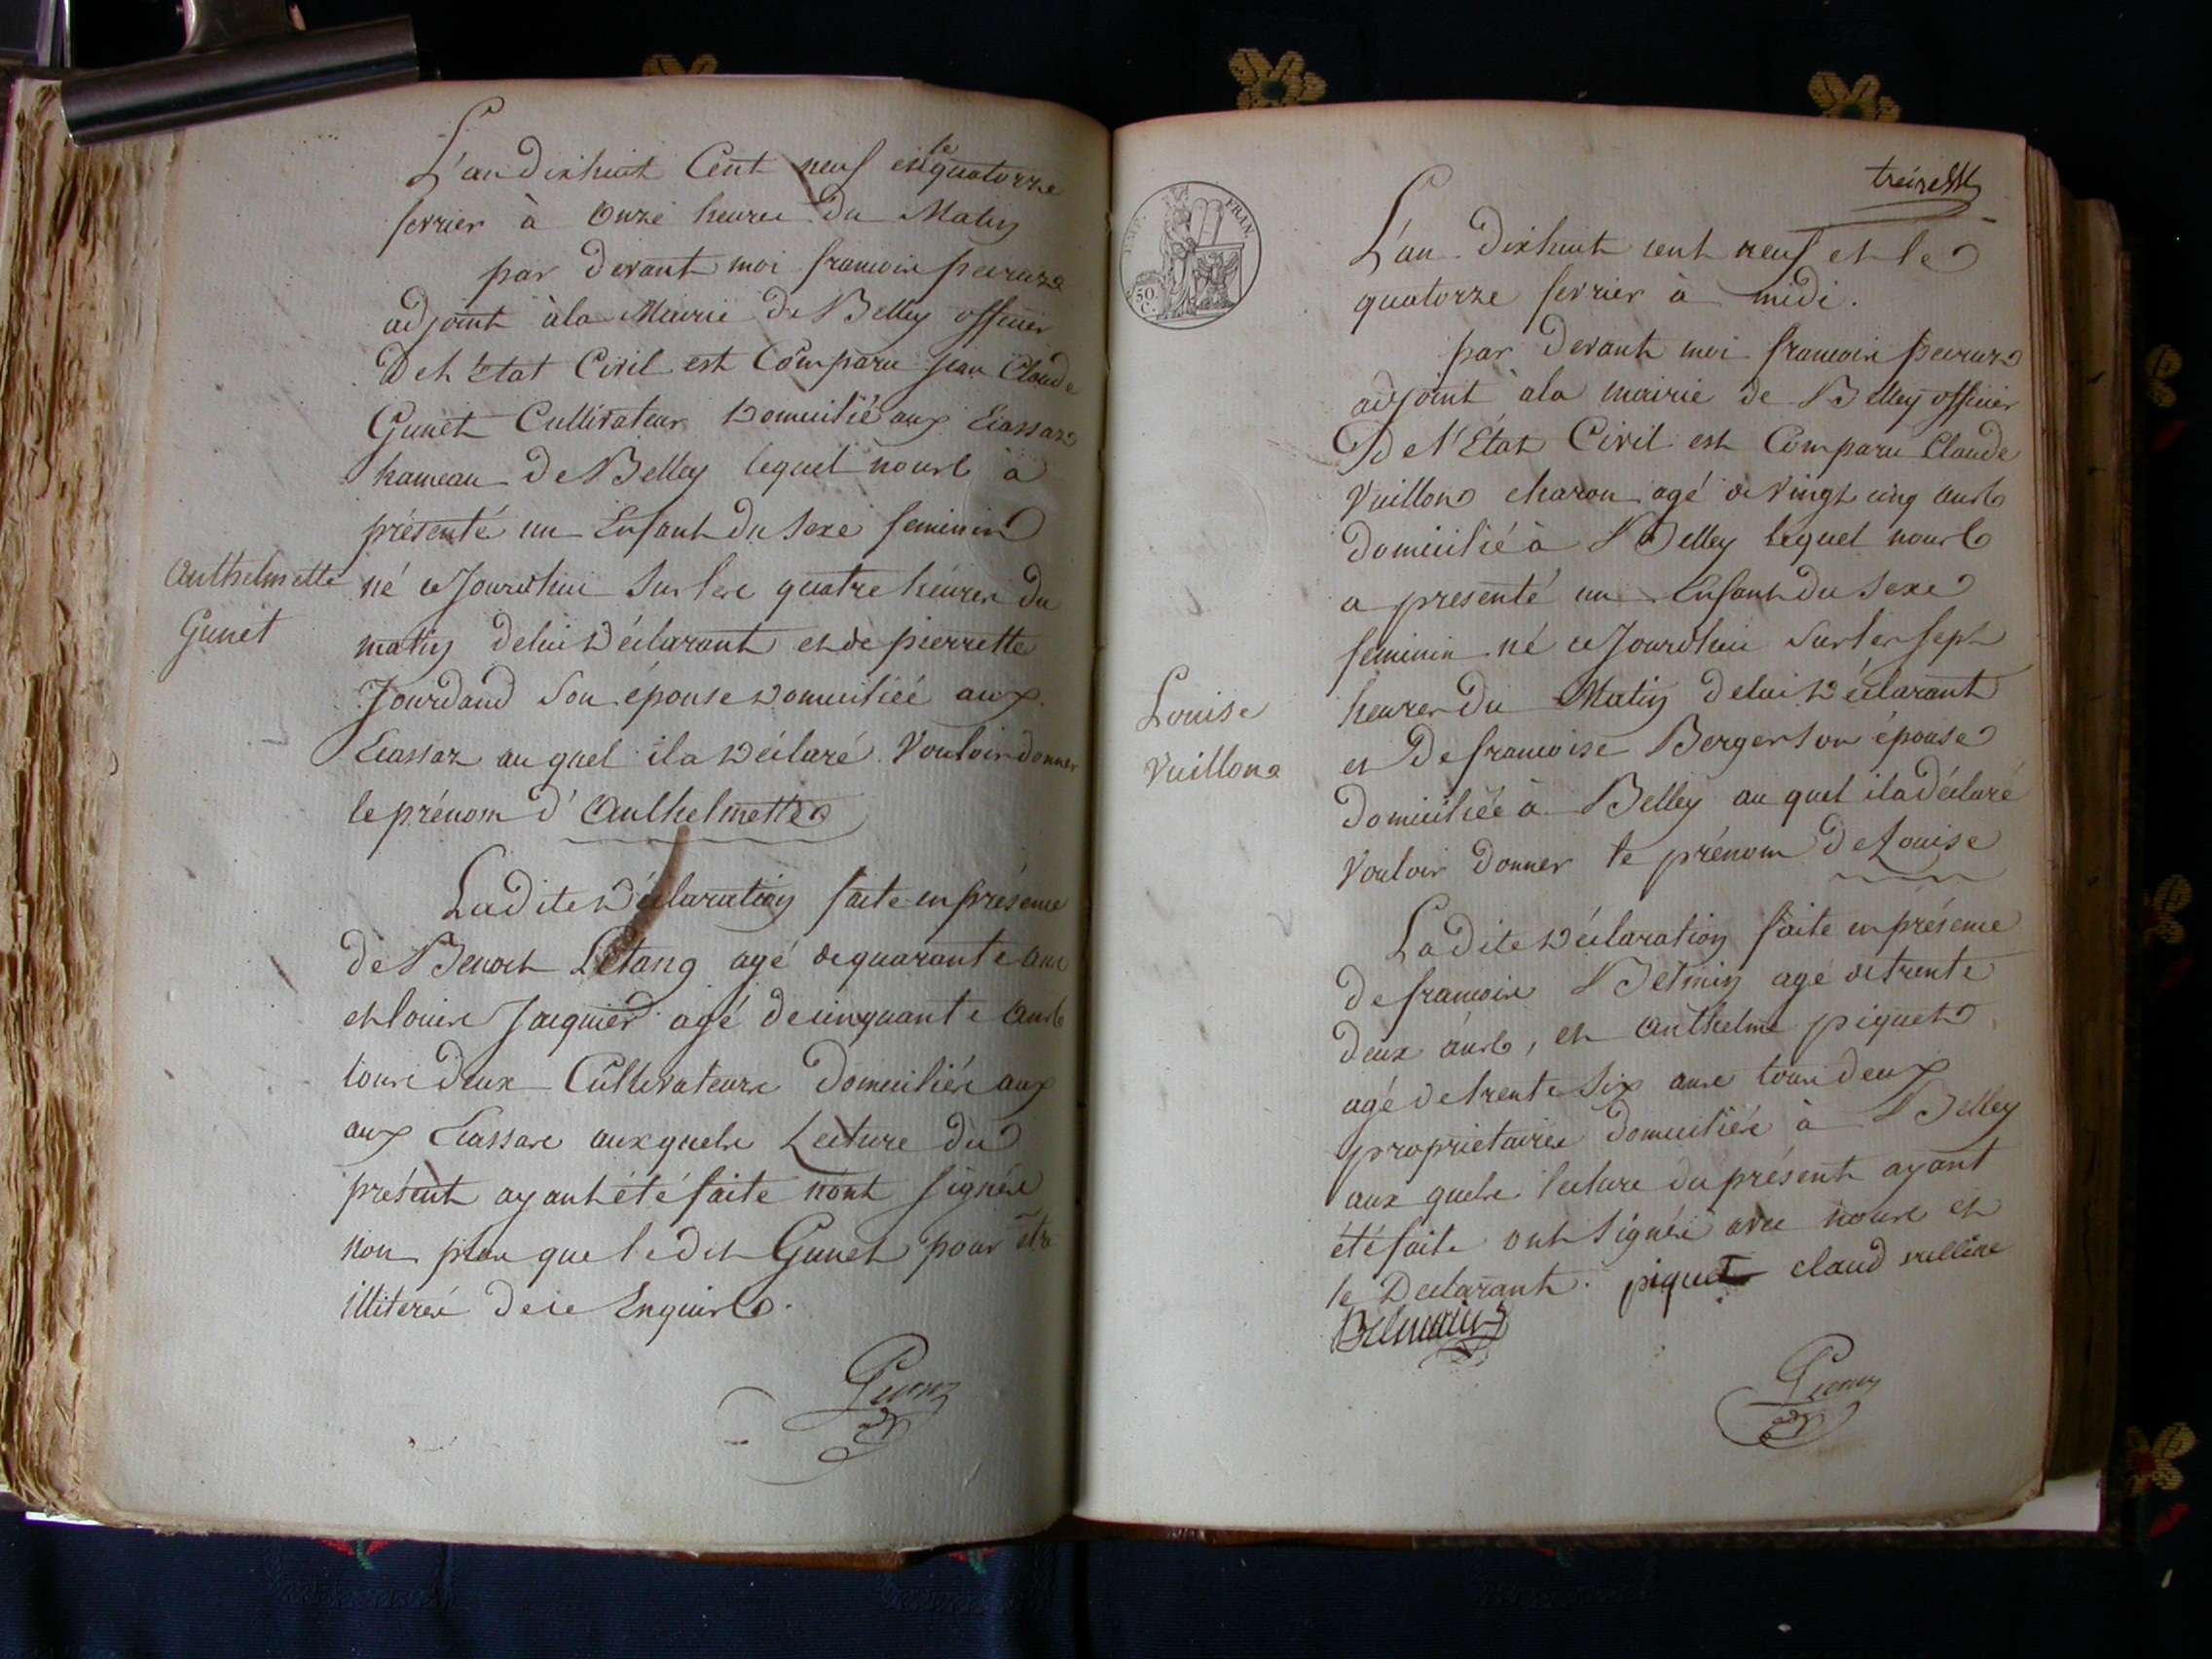 L'an dixhuit Cent neuf et le quatorze
fevrier à Onze heures du Matin
par devant moi francois peeraz
adjoint à la Mairie de Belley officier
De l'Etat Civil est Comparu Jean Claude
Gunet Cultivateur Domicilié aux Ecassaz
hameau de Belley lequel nous à
présenté un Enfant du Sexe feminin
né ce Jourdhui Sur les quatre heures du
matin de lui Déclarant et de pierrette
Jourdand Son épouse Domiciliée aux
Ecassaz au quel il a Déclaré Vouloir donner
le prénom d' Anthelmette
Anthelmette
Gunet
La dite Déclaration faite en présence
de Benoit Létang agé de quarante ans
et louis Jacquier agé de cinquante ans
tous deux Cultivateurs Domiciliés aux
aux Ecassas auxquels Lecture du
présent ayant été faite n'ont signés
non plus que le dit Gunet pour être
illiterés de ce Enquis.
treize
L'an Dixhuit cent neuf et le
quatorze fevrier à midi.
par devant moi francois peeraz
adjoint à la mairie de Belley officier
De l'État Civil est Comparu Claude
Vuillon charon agé de Vingt cinq ans
domicilié à Belley lequel nous
a présenté un Enfant du Sexe
feminin né ce Jourdhui Sur les sept
heures du Matin de lui Déclarant
et De francoise Berger Son épouse
domiciliée à Belley au quel il a déclaré
Vouloir donner le prénom De Louise
Louise
Vuillon
La dite Déclaration faite en présence
de francois Belmin agé de trente
deux ans, et Anthelme piquet
agé de trente Six ans tous deux
propriétaires domiciliés à Belley
aux quels lecture du présent ayant
été faite ont Signés avec nous et
le Declarant. piquet claud
IMP. FRAN.
50.
C.